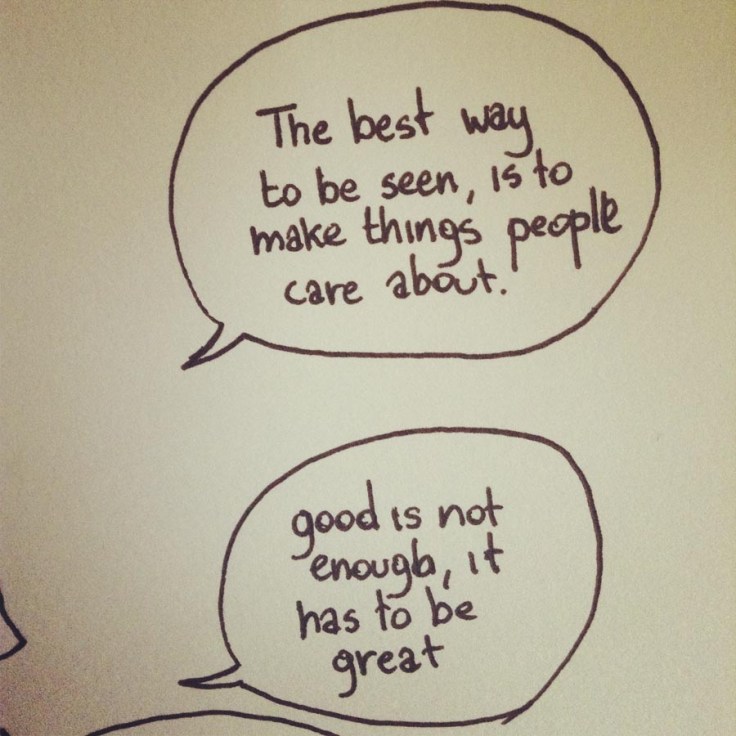 The best way
to be seen, is to
make things people
care about.
good is not
enough, it
has to be
great